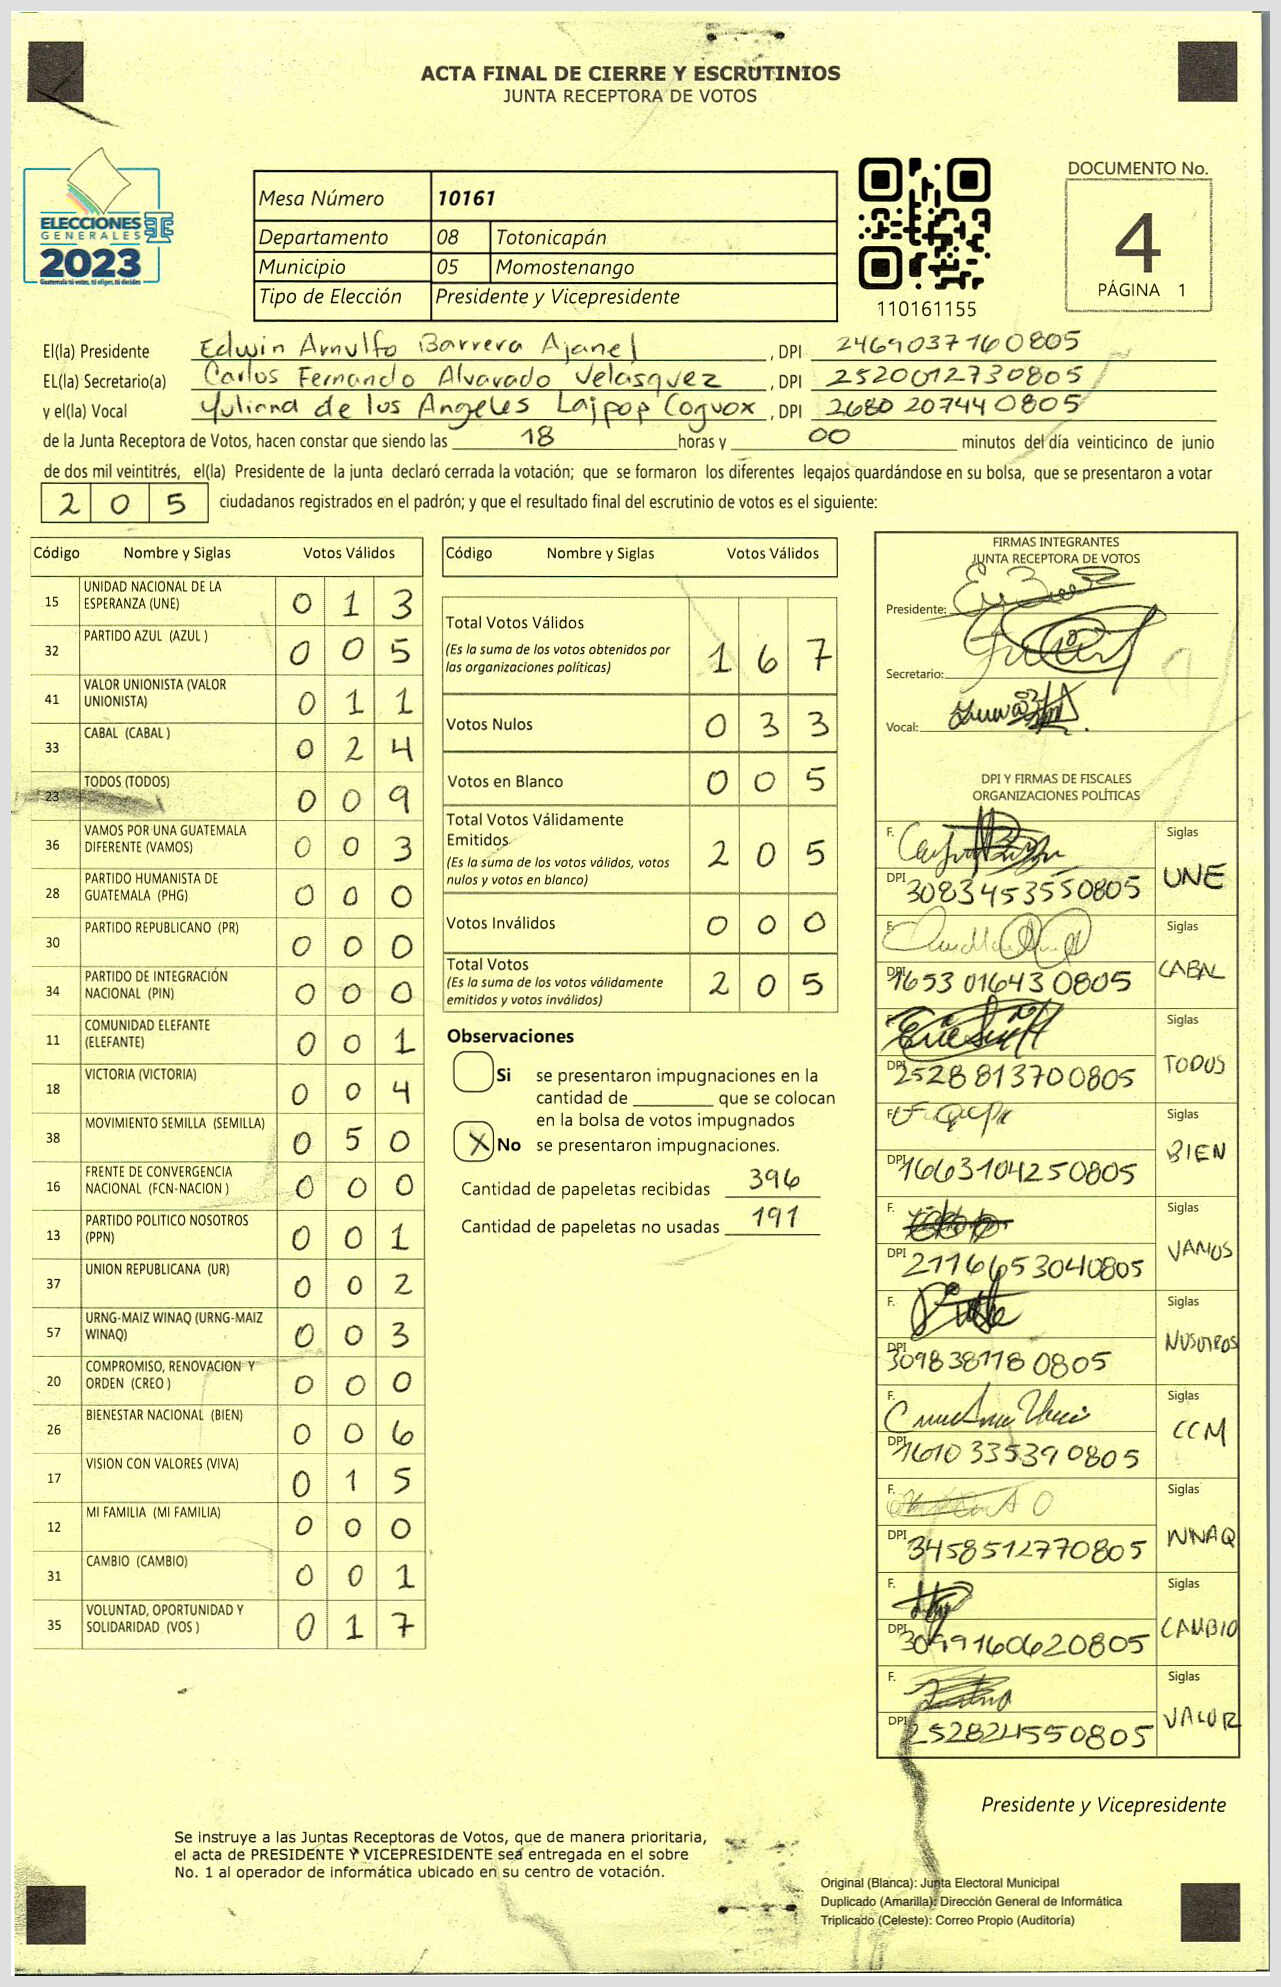 ACTA FINAL DE CIERRE Y ESCRUTINIOS
JUNTA RECEPTORA DE VOTOS
ELECCIONES
GENERALES
2023
Guatemala tú votas, tú eliges, tú decides
Mesa Número 10161
Departamento 08 Totonicapán
Municipio 05 Momostenango
Tipo de Elección Presidente y Vicepresidente
110161155
DOCUMENTO No.
4
PÁGINA 1
El(la) Presidente Edwin Arnulfo Barrera Ajanel , DPI 2469037160805
EL(la) Secretario(a) Carlos Fernando Alvarado Velásquez , DPI 2520012730805
y el(la) Vocal Yuliana de los Angeles Lajpop Coguox , DPI 2680207440805
de la Junta Receptora de Votos, hacen constar que siendo las 18 horas y 00 minutos del día veinticinco de junio
de dos mil veintitrés, el(la) Presidente de la junta declaró cerrada la votación; que se formaron los diferentes legajos guardándose en su bolsa, que se presentaron a votar
2 0 5 ciudadanos registrados en el padrón; y que el resultado final del escrutinio de votos es el siguiente:
Código Nombre y Siglas Votos Válidos
15 UNIDAD NACIONAL DE LA ESPERANZA (UNE) 0 1 3
32 PARTIDO AZUL (AZUL ) 0 0 5
41 VALOR UNIONISTA (VALOR UNIONISTA) 0 1 1
33 CABAL (CABAL ) 0 2 4
23 TODOS (TODOS) 0 0 9
36 VAMOS POR UNA GUATEMALA DIFERENTE (VAMOS) 0 0 3
28 PARTIDO HUMANISTA DE GUATEMALA (PHG) 0 0 0
30 PARTIDO REPUBLICANO (PR) 0 0 0
34 PARTIDO DE INTEGRACIÓN NACIONAL (PIN) 0 0 0
11 COMUNIDAD ELEFANTE (ELEFANTE) 0 0 1
18 VICTORIA (VICTORIA) 0 0 4
38 MOVIMIENTO SEMILLA (SEMILLA) 0 5 0
16 FRENTE DE CONVERGENCIA NACIONAL (FCN-NACION ) 0 0 0
13 PARTIDO POLITICO NOSOTROS (PPN) 0 0 1
37 UNION REPUBLICANA (UR) 0 0 2
57 URNG-MAIZ WINAQ (URNG-MAIZ WINAQ) 0 0 3
20 COMPROMISO, RENOVACION Y ORDEN (CREO ) 0 0 0
26 BIENESTAR NACIONAL (BIEN) 0 0 6
17 VISION CON VALORES (VIVA) 0 1 5
12 MI FAMILIA (MI FAMILIA) 0 0 0
31 CAMBIO (CAMBIO) 0 0 1
35 VOLUNTAD, OPORTUNIDAD Y SOLIDARIDAD (VOS ) 0 1 7
Código Nombre y Siglas Votos Válidos
Total Votos Válidos
(Es la suma de los votos obtenidos por
las organizaciones políticas) 1 6 7
Votos Nulos 0 3 3
Votos en Blanco 0 0 5
Total Votos Válidamente
Emitidos
(Es la suma de los votos válidos, votos
nulos y votos en blanco) 2 0 5
Votos Inválidos 0 0 0
Total Votos
(Es la suma de los votos válidamente
emitidos y votos inválidos) 2 0 5
Observaciones
Si se presentaron impugnaciones en la
cantidad de ________ que se colocan
en la bolsa de votos impugnados
X No se presentaron impugnaciones.
Cantidad de papeletas recibidas 396
Cantidad de papeletas no usadas 191
FIRMAS INTEGRANTES
JUNTA RECEPTORA DE VOTOS
Presidente:
Secretario:
Vocal:
DPI Y FIRMAS DE FISCALES
ORGANIZACIONES POLÍTICAS
F. Siglas
DPI 3083453550805 UNE
F. Siglas
DPI 1653016430805 CABAL
F. Siglas
DPI 2528813700805 TODOS
F. Siglas
DPI 1663104250805 BIEN
F. Siglas
DPI 2116653040805 VAMOS
F. Siglas
DPI 3098381180805 NUSOTROS
F. Siglas
DPI 1610335390805 CCM
F. Siglas
DPI 3458512770805 WNAQ
F. Siglas
DPI 3099160620805 CAMBIO
F. Siglas
DPI 252824550805 VALOR
Presidente y Vicepresidente
Se instruye a las Juntas Receptoras de Votos, que de manera prioritaria,
el acta de PRESIDENTE Y VICEPRESIDENTE sea entregada en el sobre
No. 1 al operador de informática ubicado en su centro de votación.
Original (Blanca): Junta Electoral Municipal
Duplicado (Amarilla): Dirección General de Informática
Triplicado (Celeste): Correo Propio (Auditoría)